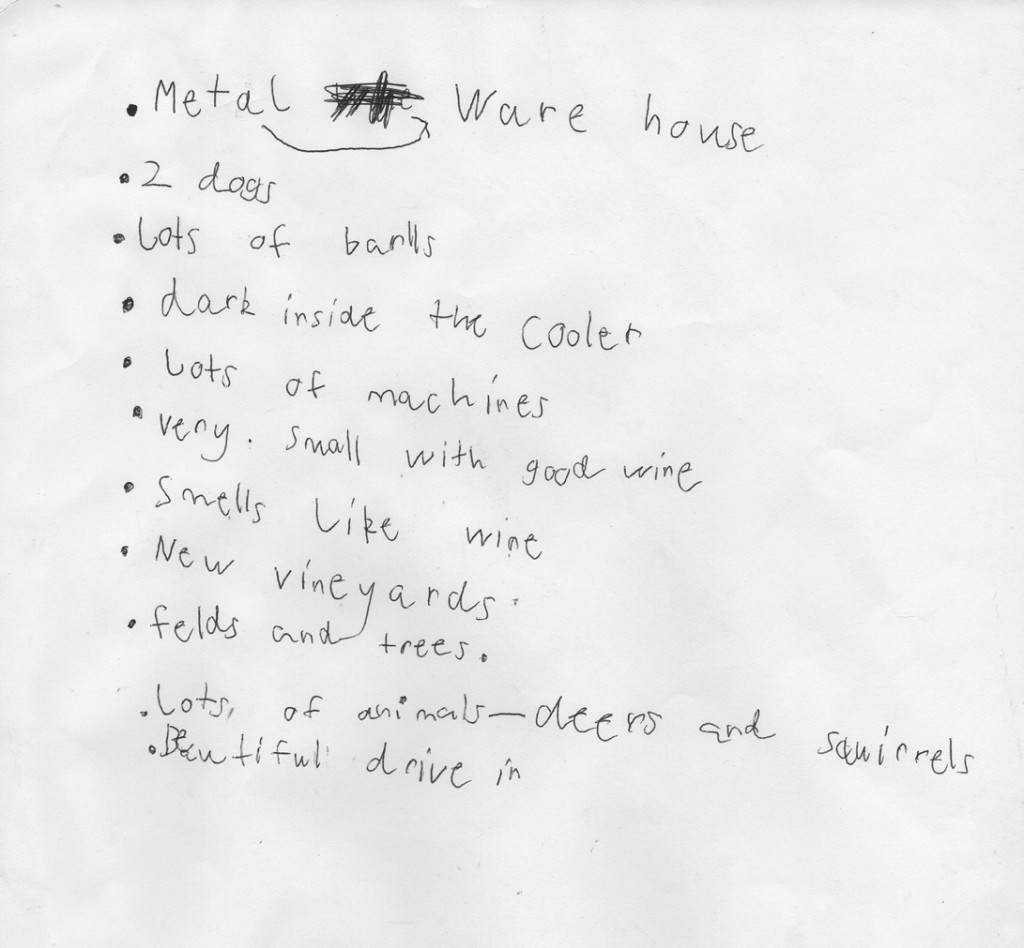 • Metal Ware house
• 2 dogs
• Lots of barlls
• dark inside the cooler
• Lots of machines
• very. small with good wine
• Smells Like wine
• New vineyards.
• felds and trees.
• Lots, of animals—deers and squirrels
• Beautiful drive in